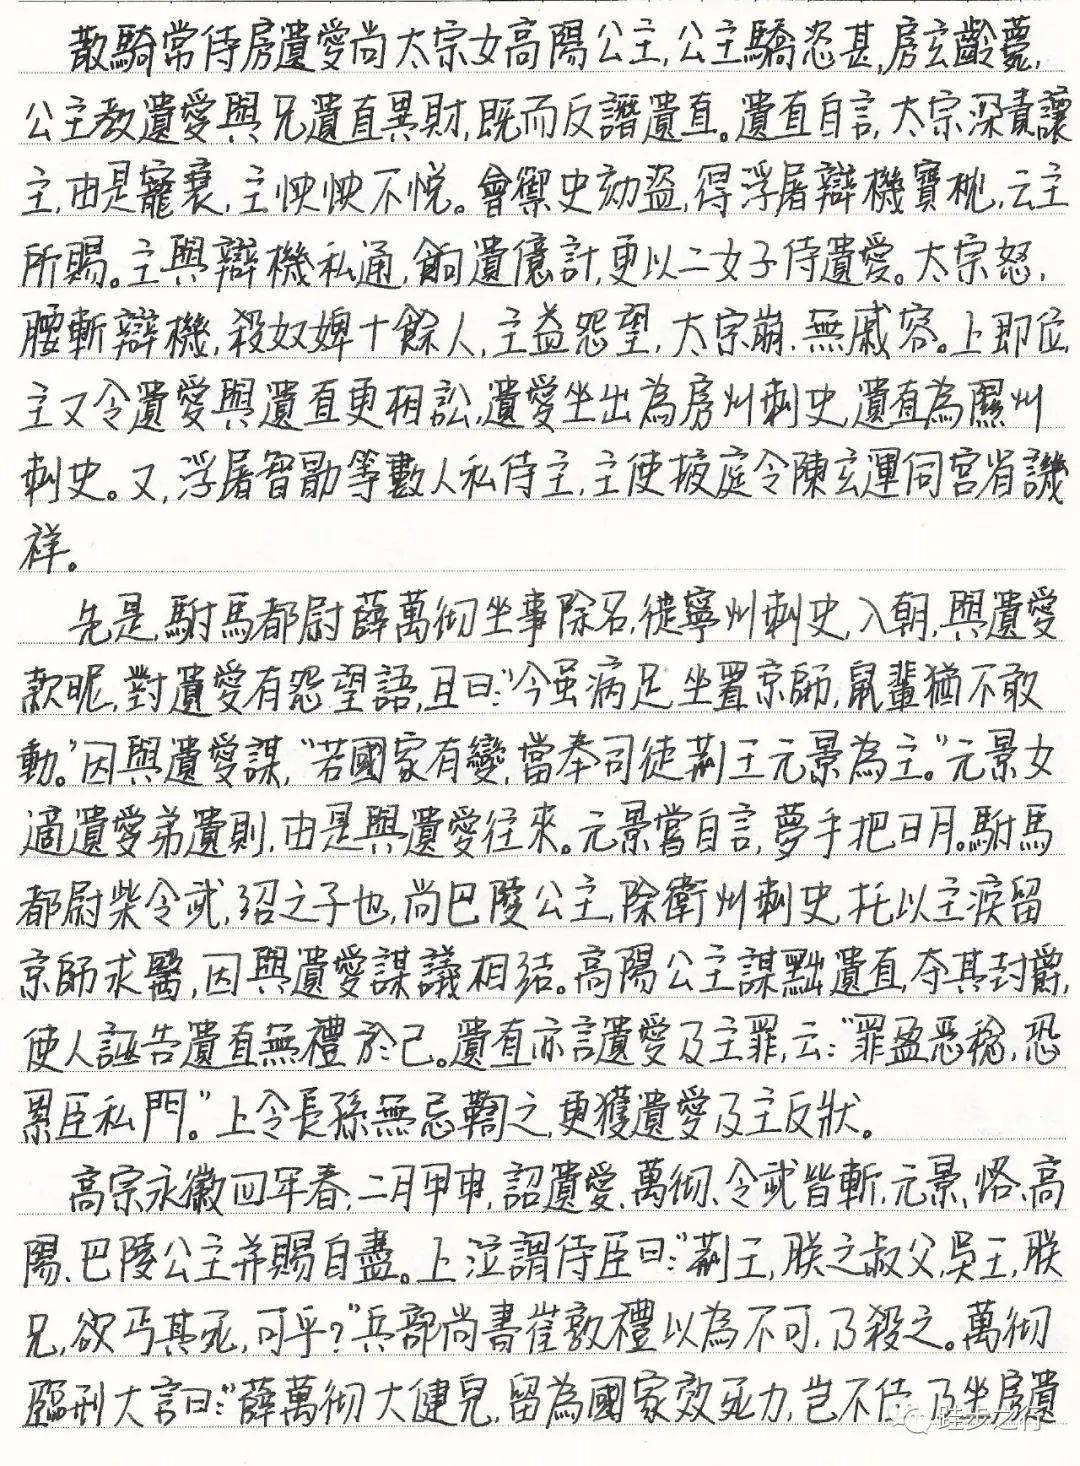 散騎常侍房遺愛尚太宗女高陽公主,公主驕恣甚,房玄齡薨,
公主教遺愛與兄遺直異財,既而反譖遺直。遺直自言,太宗深責讓
主,由是寵衰,主怏怏不悅。會禦史劾盜,得浮屠辯機寶枕,云主
所賜。主與辯機私通,餉遺億計,更以二女子侍遺愛。太宗怒,
腰斬辯機,殺奴婢十餘人,主益怨望,太宗崩,無戚容。上即位,
主又令遺愛與遺直更相訟,遺愛坐出為房州刺史,遺直為隰州
刺史。又,浮屠智勖等數人私侍主,主使掖庭令陳玄運伺宮省譏
祥。
先是,駙馬都尉薛萬彻坐事除名,徙寧州刺史,入朝,與遺愛
款昵,對遺愛有怨望語,且曰:"今虽病足,坐置京師,鼠輩猶不敢
動。"因與遺愛謀,"若國家有變,當奉司徒荊王元景為主。"元景女
適遺愛弟遺則,由是與遺愛往來。元景嘗自言,夢手把日月。駙馬
都尉柴令武,绍之子也,尚巴陵公主,除衛州刺史,托以主疾留
京師求醫,因與遺愛謀議相结。高陽公主謀黜遺直,夺其封爵,
使人誣告遺直無禮於己。遺直亦言遺愛及主罪,云:"罪盈恶稔,恐
累臣私門。"上令長孫無忌鞫之,更獲遺愛及主反狀。
高宗永徽四年春,二月甲申,詔遺愛、萬彻、令武皆斬,元景、恪、高
陽、巴陵公主并賜自盡。上泣謂侍臣曰:"荊王,朕之叔父,吳王,朕
兄,欲丐其死,可乎?"兵部尚書崔敦禮以為不可,乃殺之。萬彻
臨刑大言曰:"薛萬彻大健兒,留為國家效死力,岂不佳,乃坐房遺
跬步之行